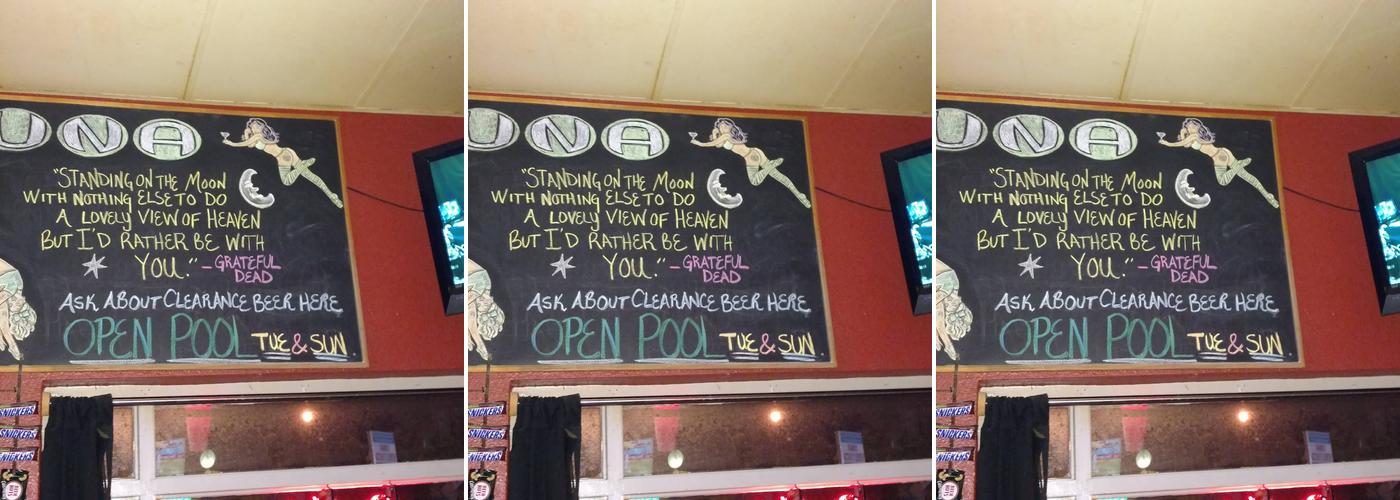 UNA
"STANDING ON THE MOON
WITH NOTHING ELSE TO DO
A LOVELY VIEW OF HEAVEN
BUT I'D RATHER BE WITH
YOU." - GRATEFUL
DEAD
ASK ABOUT CLEARANCE BEER HERE
OPEN POOL TUE & SUN
SNICKERS
SNICKERS
SNICKERS
UNA
"STANDING ON THE MOON
WITH NOTHING ELSE TO DO
A LOVELY VIEW OF HEAVEN
BUT I'D RATHER BE WITH
YOU." - GRATEFUL
DEAD
ASK ABOUT CLEARANCE BEER HERE
OPEN POOL TUE & SUN
SNICKERS
SNICKERS
SNICKERS
UNA
"STANDING ON THE MOON
WITH NOTHING ELSE TO DO
A LOVELY VIEW OF HEAVEN
BUT I'D RATHER BE WITH
YOU." - GRATEFUL
DEAD
ASK ABOUT CLEARANCE BEER HERE
OPEN POOL TUE & SUN
SNICKERS
SNICKERS
SNICKERS